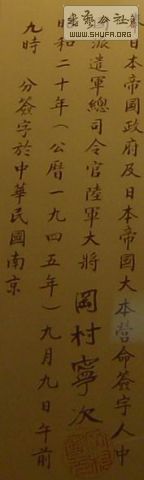 日本帝國政府及日本帝國大本營命簽字人中
派遣軍總司令官陸軍大將 岡村寧次
昭和二十年（公曆一九四五年）九月九日午前
九時 分簽字於中華民國南京
WWW.SHUFA.ORG